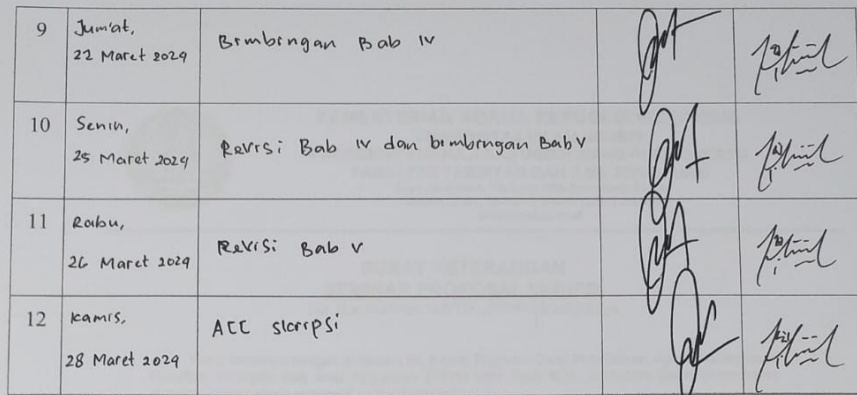 9
Jum'at,
22 Maret 2024
Bimbingan Bab IV
10
Senin,
25 Maret 2024
Revisi Bab IV dan bimbingan Bab V
11
Rabu,
26 Maret 2024
Revisi Bab V
12
Kamis,
28 Maret 2024
ACC skripsi